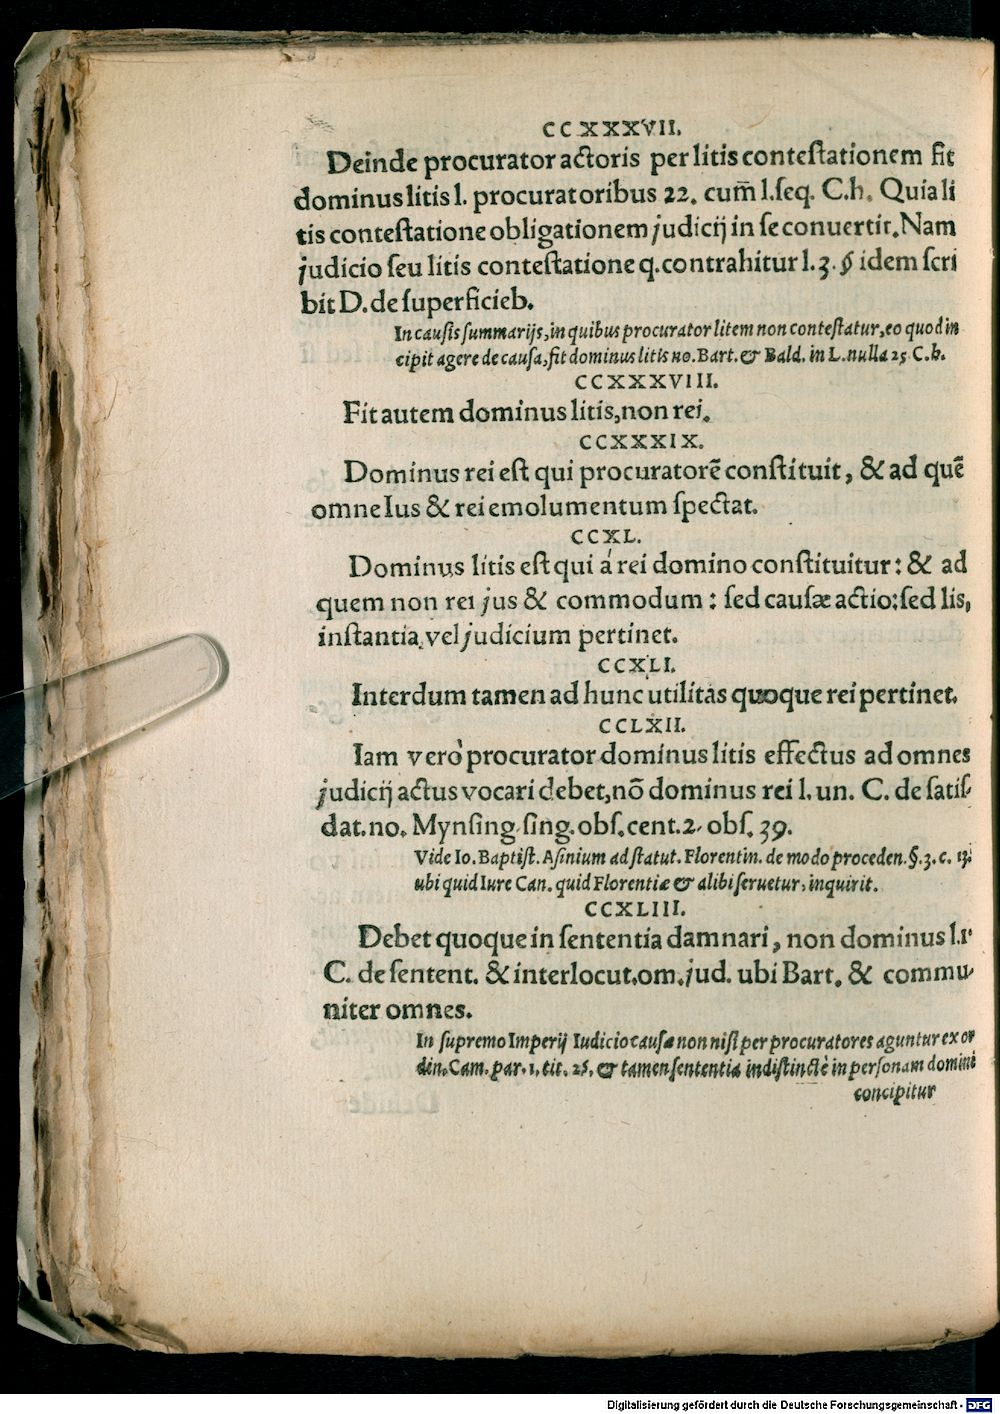 CCXXXVII.
Deinde procurator actoris per litis contestationem fit
dominus litis l. procuratoribus 22. cum̃ l. seq. C. h. Quia li
tis contestatione obligationem judicij in se conuertit. Nam
judicio seu litis contestatione q. contrahitur l. 3. § idem scri
bit D. de superficieb.
In causis summarijs, in quibus procurator litem non contestatur, eo quod in
cipit agere de causa, fit dominus litis no. Bart. & Bald. in L. nulla 25 C. h.
CCXXXVIII.
Fit autem dominus litis, non rei.
CCXXXIX.
Dominus rei est qui procuratorē constituit, & ad quē
omne Ius & rei emolumentum spectat.
CCXL.
Dominus litis est qui á rei domino constituitur: & ad
quem non rei jus & commodum: sed causæ actio: sed lis,
instantia vel judicium pertinet.
CCXLI.
Interdum tamen ad hunc utilitas quoque rei pertinet.
CCLXII.
Iam verò procurator dominus litis effectus ad omnes
judicij actus vocari debet, nō dominus rei l. un. C. de satis-
dat. no. Mynsing. sing. obs. cent. 2. obs. 39.
Vide Io. Baptist. Asinium ad statut. Florentin. de modo proceden. §. 3. c. 13.
ubi quid Iure Can. quid Florentiæ & alibi seruetur, inquirit.
CCXLIII.
Debet quoque in sententia damnari, non dominus l. 1.
C. de sentent. & interlocut. om. jud. ubi Bart. & commu-
niter omnes.
In supremo Imperij Iudicio causæ non nisi per procuratores aguntur ex or
din. Cam. par. 1. tit. 25. & tamen sententia indistinctè in personam domini
concipitur
Digitalisierung gefördert durch die Deutsche Forschungsgemeinschaft - DFG